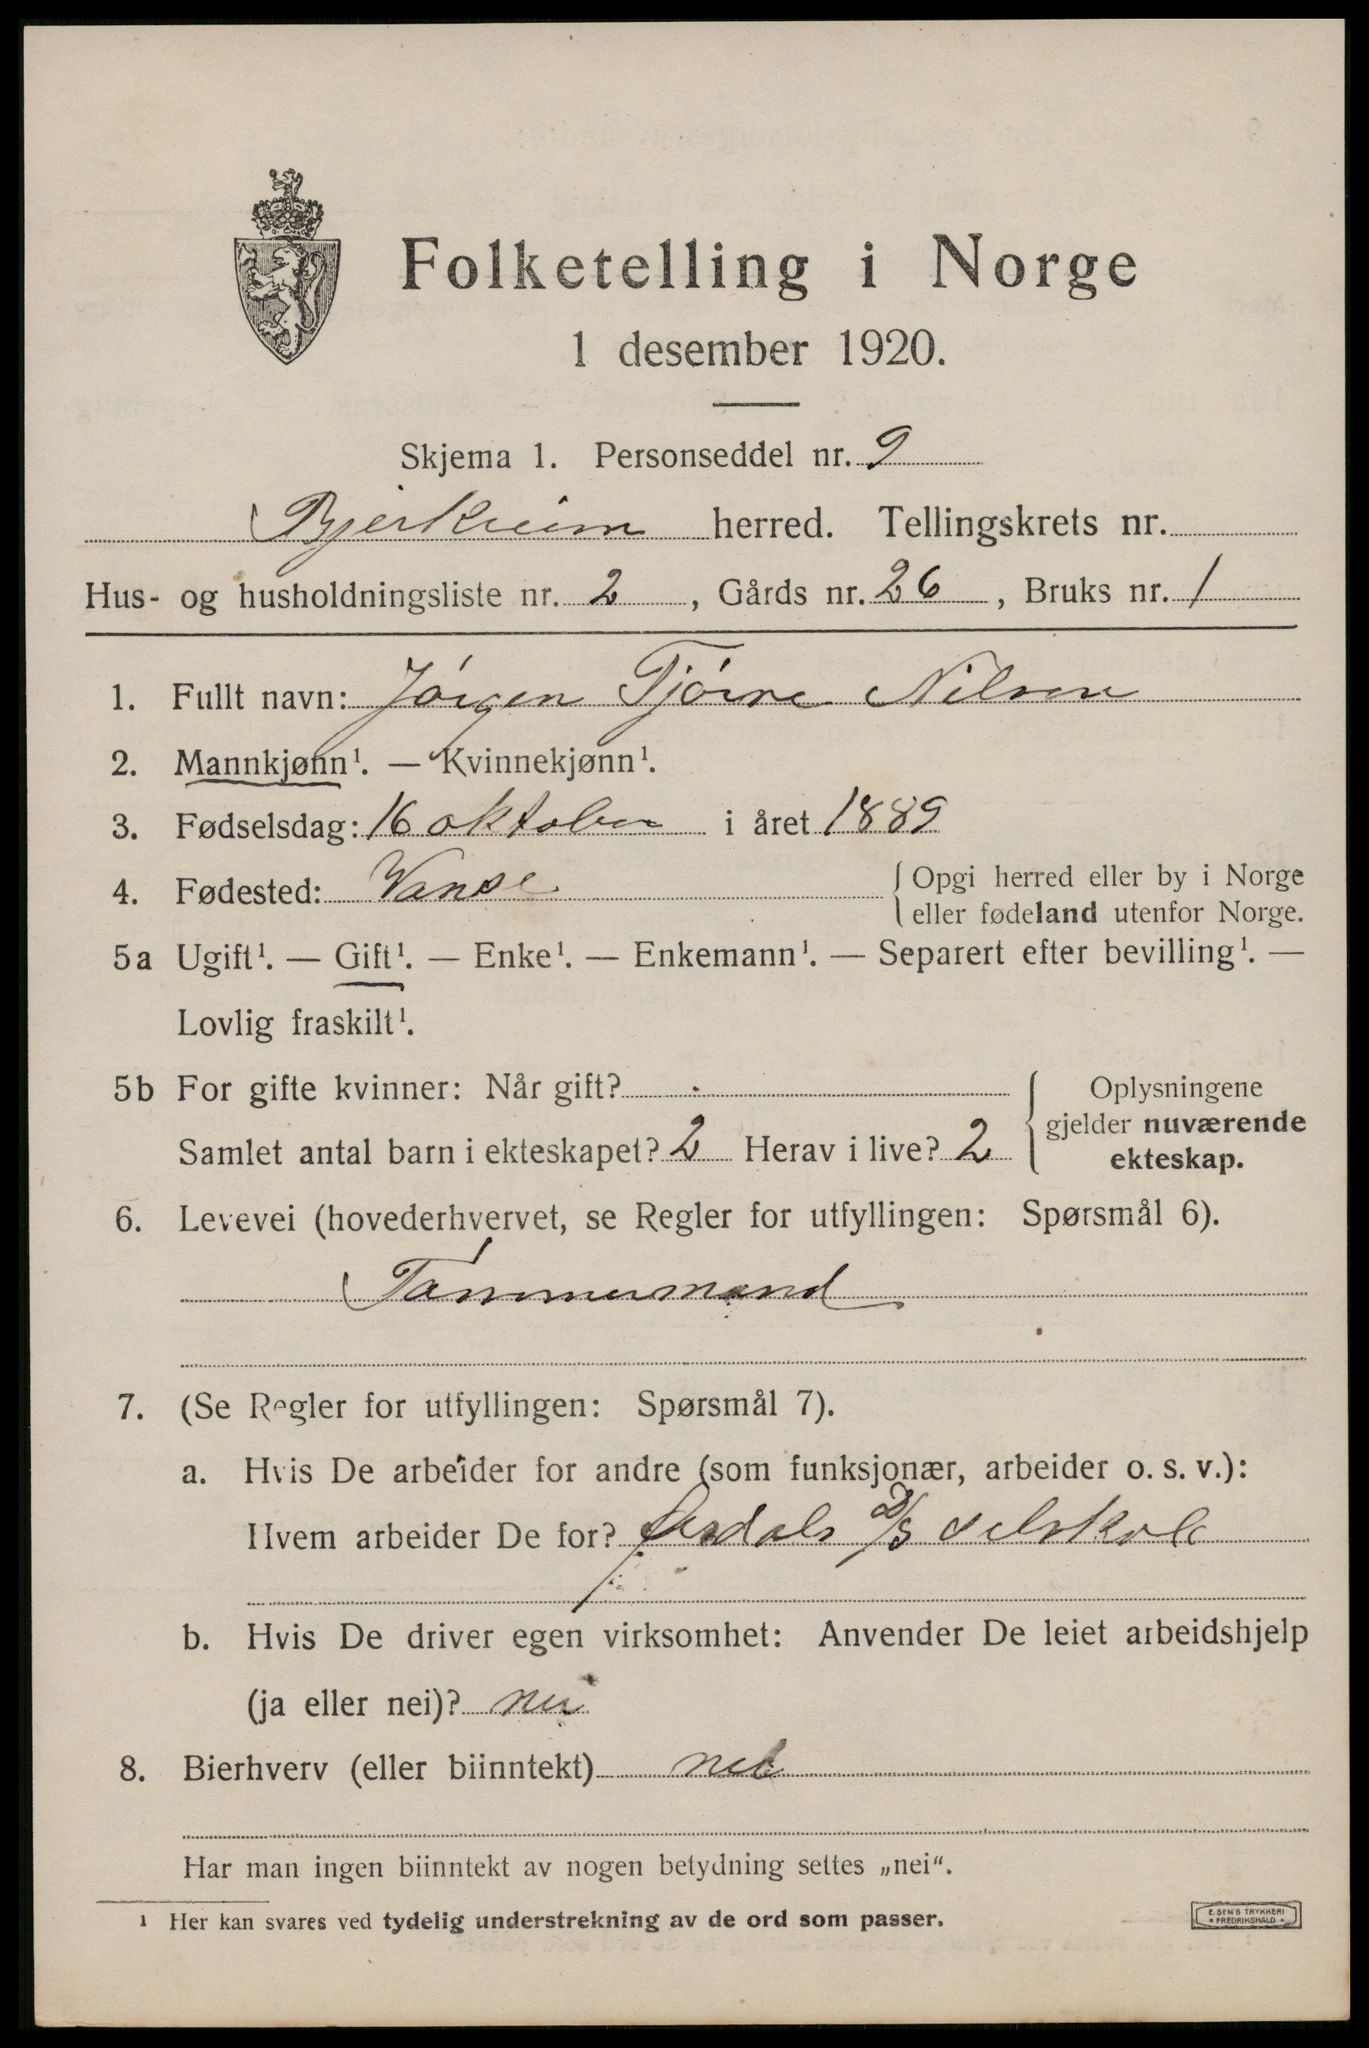 Folketelling i Norge
1 desember 1920.
Skjema 1. Personseddel nr. 9
Bjerkreim herred. Tellingskrets nr.
Hus- og husholdningsliste nr. 2, Gårds nr. 26, Bruks nr. 1
1. Fullt navn: Jórgen Tjórve Nilsen
2. Mannkjønn¹. — Kvinnekjønn¹.
3. Fødselsdag: 16 oktober i året 1889
4. Fødested: Vanse { Opgi herred eller by i Norge
eller fødeland utenfor Norge.
5a Ugift¹. — Gift¹. — Enke¹. — Enkemann¹. — Separert efter bevilling¹. —
Lovlig fraskilt¹.
5b For gifte kvinner: Når gift?
Samlet antal barn i ekteskapet? 2 Herav i live? 2
{ Oplysningene
gjelder nuværende
ekteskap.
6. Levevei (hovederhvervet, se Regler for utfyllingen: Spørsmål 6).
Tómmermand
7. (Se Regler for utfyllingen: Spørsmål 7).
a. Hvis De arbeider for andre (som funksjonær, arbeider o. s. v.):
Hvem arbeider De for? selskab
b. Hvis De driver egen virksomhet: Anvender De leiet arbeidshjelp
(ja eller nei)? nei
8. Bierhverv (eller biinntekt) nei
Har man ingen biinntekt av nogen betydning settes „nei".
¹ Her kan svares ved tydelig understrekning av de ord som passer.
E. SEM'S TRYKKERI
FREDRIKSHALD